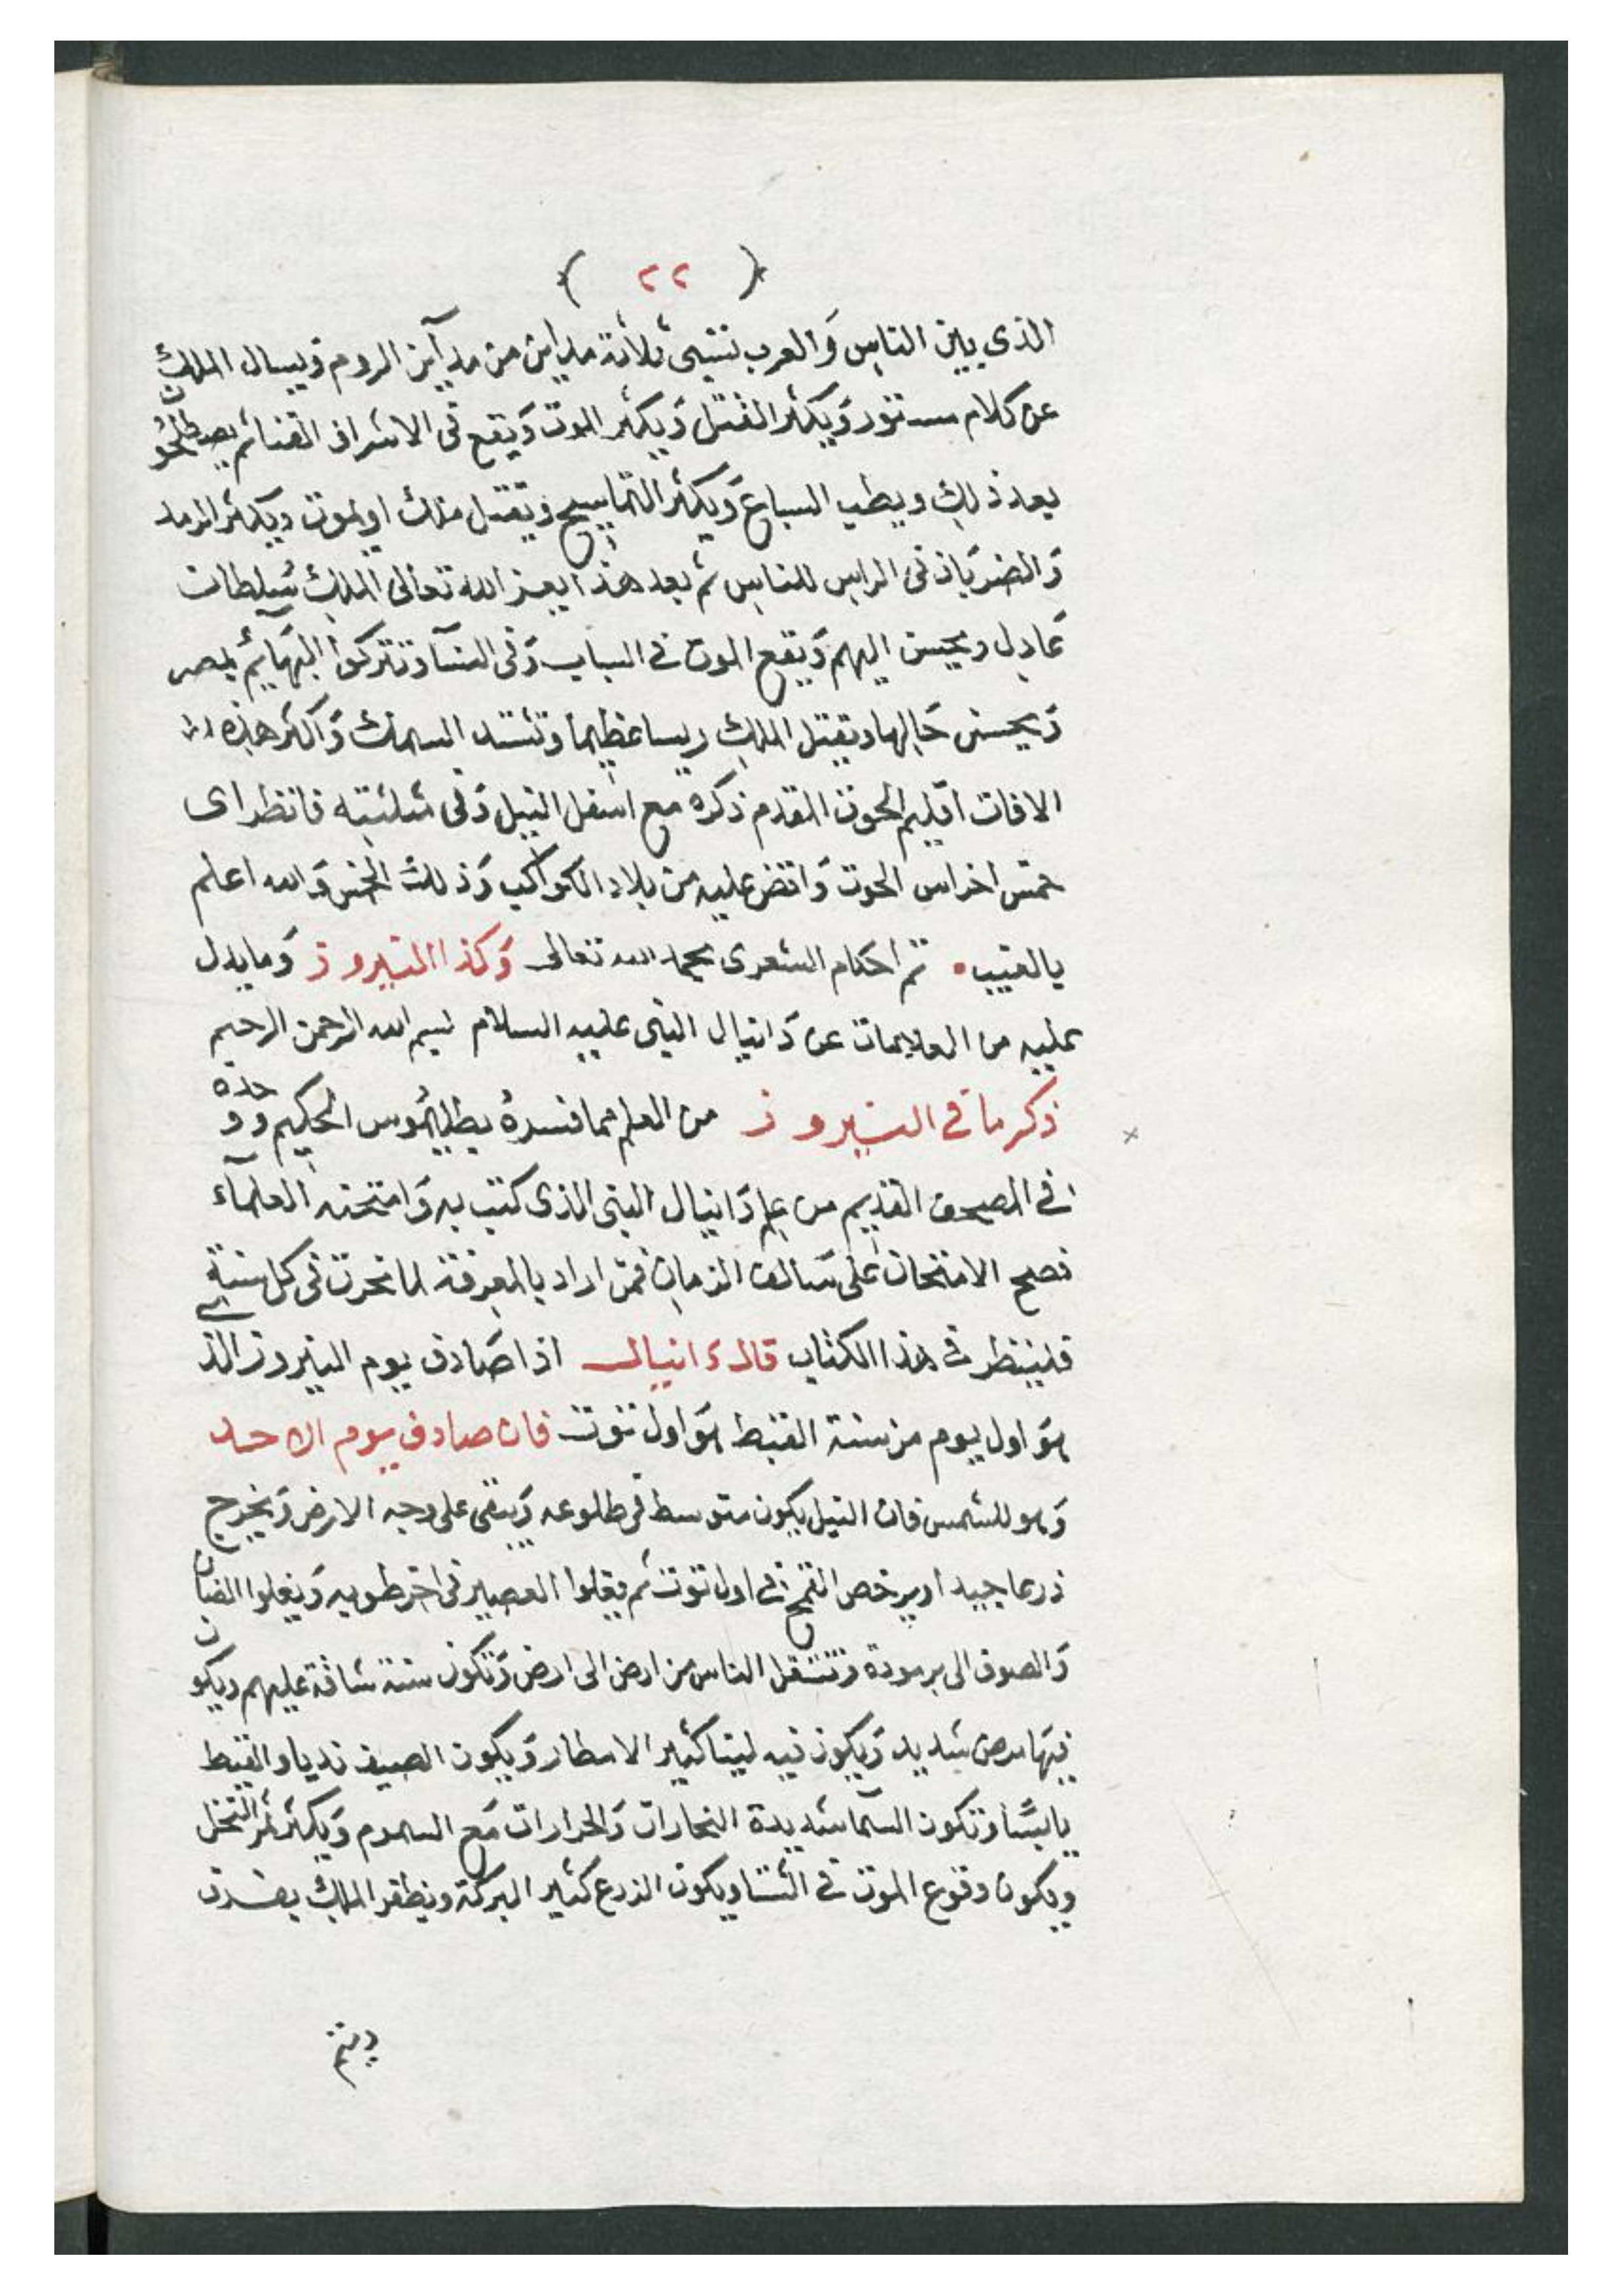 ( ٢٢ )
الذى بين الناس وَالعرب تنتهى ثلاثة مداين من مدآين الروم ويسال الملك
عن كلام مستور وَيكثر القتل وَيكثر الموت وَيقع فى الاشراف الفنا ثم يصطلحون
بعد ذلك ويطب السباع وَيكثر التماسيح ويقتل ملك او يموت ويكثر الرمد
وَالضربَان فى الراس للناس ثم بعد هذا يعز الله تعالى الملك سلطان
عَادل ويحسن اليهم وَيقع الموت فى الشباب وَفى النسآ وتتركوا البهَايم بمصر
وَيحسن حَالها ويقتل الملك ريسا عظيما وتشتد السمك وَاكثر هذه
الافات اقليم الحوت المقدم ذكره مع اسفل النيل وَفى مثلثته فانظر اى
خمس اخراس الحوت وَاقض عليه من بلاد الكواكب وَذلك الخمس وَالله اعلم
بالغيب تم أحكام الشعرى بحمد الله تعالى وَكذا النيروز وَما يدل
عليه من العلامات عن دَانيال النبى عليه السلام بسم الله الرحمن الرحيم
ذكر ما فى النيروز من العلم مما فسره بطليموس الحكيم وَوجده
فى المصحف القديم من علم دَانيال النبى الذى كتب به وَامتحنه العلمآء
فصح الامتحان على سَالف الزمان فمن اراد بالمعرفة لما تحرت فى كل سنة
فلينظر فى هذا الكتاب قال دَانيال اذا صَادف يوم النيروز الذى
هوَ اول يوم من سنة القبط هوَ اول توت فان صادف يوم الاحد
وَهو للشمس فان النيل يكون متوسط فى طلوعه وَيبقى على وجه الارض وَيخرج
زرعا جيدا ويرخص القمح فى اول توت ثم يغلوا العصير فى اخر طوبه وَيغلوا الضان
وَالصوف الى برمودة وتنتقل الناس من ارض الى ارض وَتكون سنة شاقة عليهم ويكون
فيهَا مرض شديد وَيكون فيه ليتا كثير الامطار وَيكون الصيف نديا والقبط
يابسًا وتكون السمآ شديدة البخارات وَالحرارات مَع السموم وَيكثر ثمر النخل
ويكون وقوع الموت فى الشتا ويكون الزرع كثير البركة ويظفر الملك